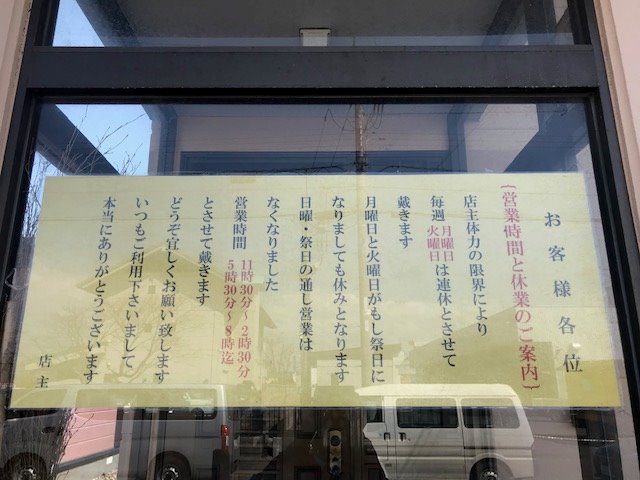 お客様各位
〔営業時間と休業のご案内〕
店主体力の限界により
毎週月曜日火曜日は連休とさせて
戴きます
月曜日と火曜日がもし祭日に
なりましても休みとなります
日曜・祭日の通し営業は
なくなりました
営業時間 11時30分～2時30分
5時30分～8時迄
とさせて戴きます
どうぞ宜しくお願い致します
いつもご利用下さいまして
本当にありがとうございます
店主